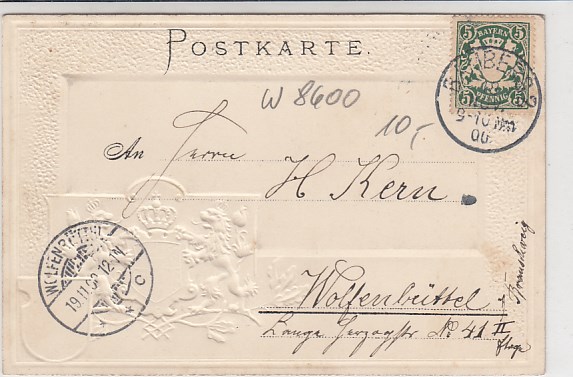 POSTKARTE.
5 BAYERN 5
5 PFENNIG 5
BAMBERG 2
9-10 Nm
00
W 8600
10,-
An Herrn
H Kern.
WOLFENBÜTTEL
19.11.00 12-1N
* * C
Wolfenbüttel
Braunschweig
Lange Herzogstr No. 41 II
Etage